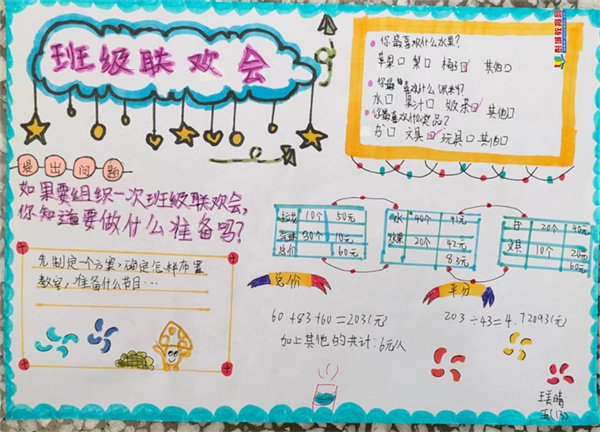 班级联欢会
你最喜欢什么水果?
苹果□ 梨□ 橘□ 其他□
你最喜欢喝什么饮料?
水□ 果汁□ 奶茶□ 其他□
你最喜欢什么奖品?
书□ 文具□ 玩具□ 其他□
提出问题
如果要组织一次班级联欢会,
你知道要做什么准备吗?
先制定一个方案,确定怎样布置
教室,准备什么节目…
拉花 10个 50元
气球 30个 10元
总价 60元
水 40个 41元
水果 20个 42元
83元
书 20个 40元
文具 10个 20元
60元
总价
60+83+60=203(元)
加上其他的共计:6元/人
平分
203÷43=4.72093(元)
五(13)